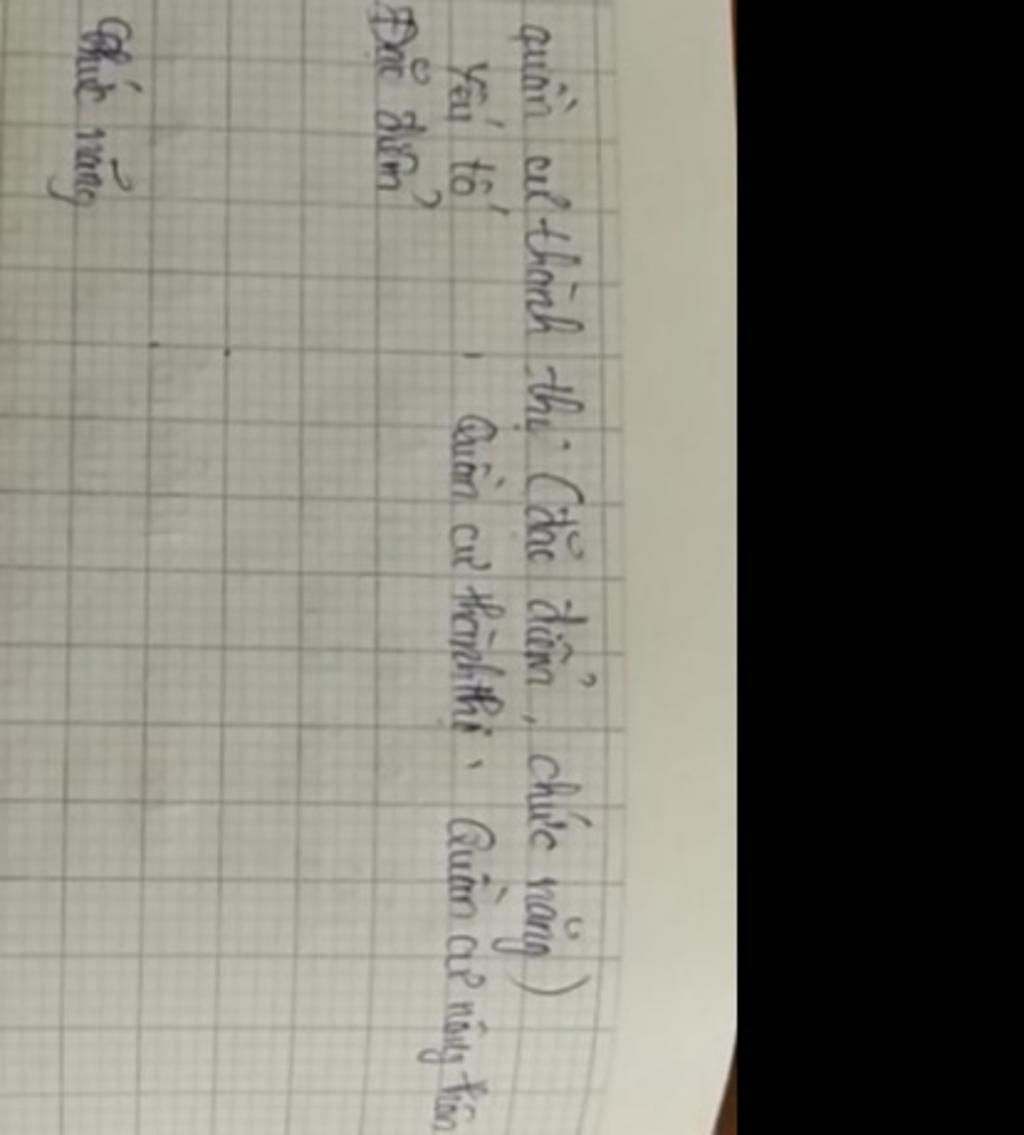 quần cư thành thị (đặc điểm, chức năng)
Yếu tố Quần cư thành thị Quần cư nông thôn
Đặc điểm
Chức năng